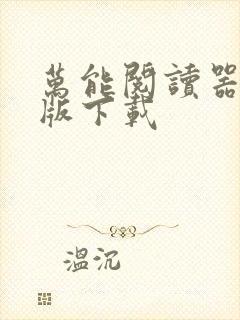 萬能閱讀器
版下載
溫沉